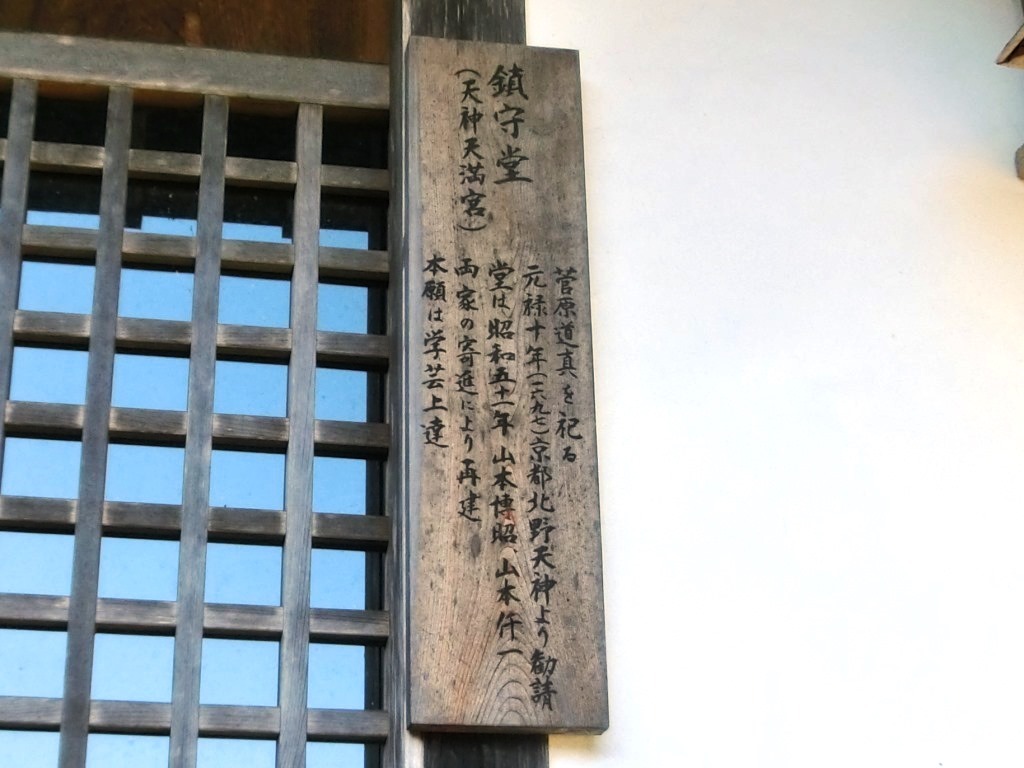 鎮守堂
(天神天満宮)
菅原道真を祀る
元禄十年(一六九七)京都北野天神より勧請
堂は昭和五十一年 山本博昭、山本仟一
両家の寄進により再建
本願は学芸上達